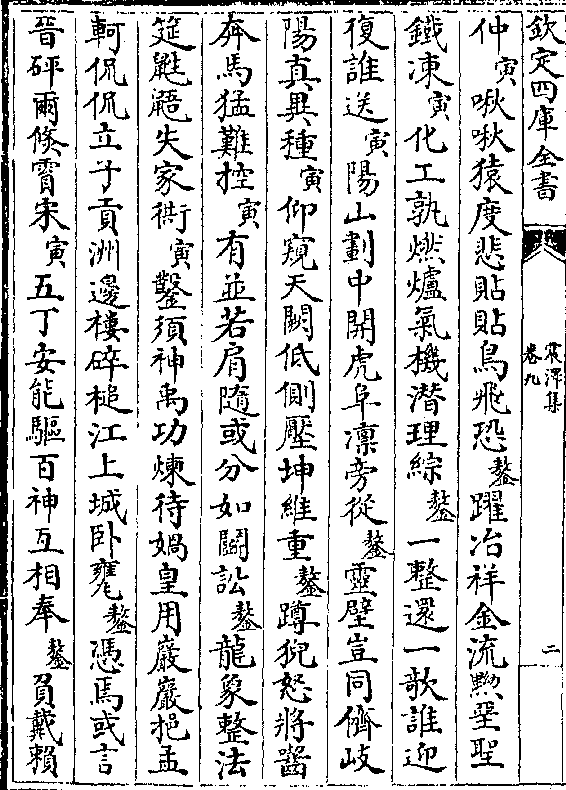 欽定四庫全書
震澤集
卷九
二
仲寅啾啾猿度悲貼貼鳥飛恐鏊躍冶祥金流黝堊聖
鐵凍寅化工孰燃爐氣機潛理綜鏊一整還一歌誰迎
復誰送寅陽山劃中開虎阜凛旁從鏊靈壁豈同儕岐
陽真異種寅仰窺天闕低側壓坤維重鏊蹲猊怒將齧
奔馬猛難控寅有並若肩隨或分如鬬訟鏊龍象整法
筵鼪鼯失家衖寅鑿須神禹功煉待媧皇用巖巖挹孟
軻侃侃立子貢洲邊樓碎槌江上城卧甕鏊憑焉或言
晉砰爾倏霣宋寅五丁安能驅百神互相奉鏊負戴賴